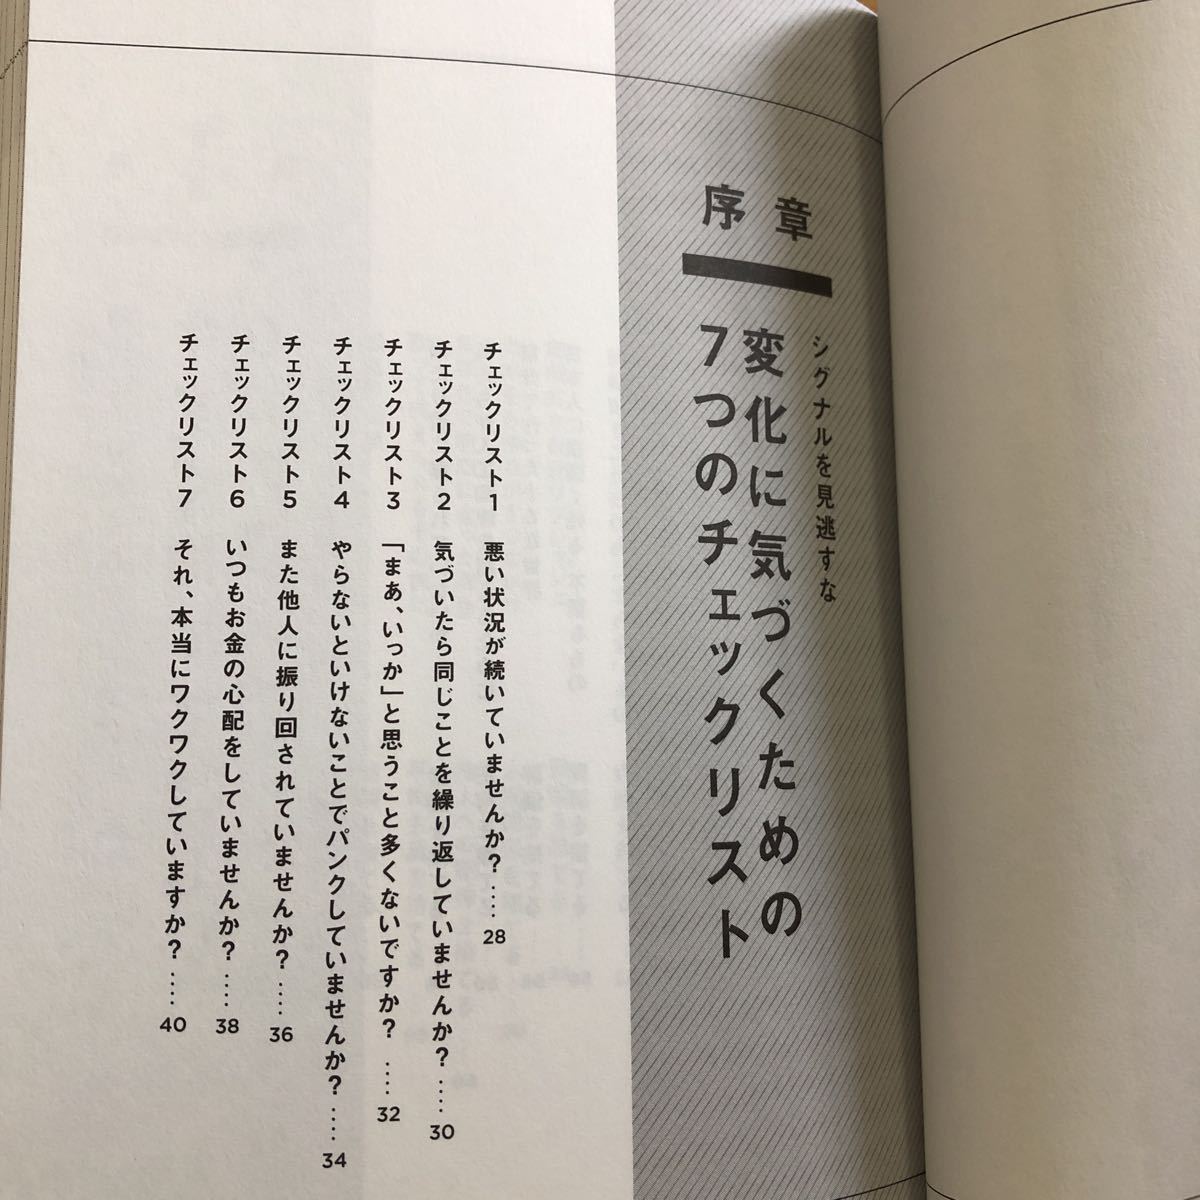 序章
シグナルを見逃すな
変化に気づくための
7つのチェックリスト
チェックリスト1 悪い状況が続いていませんか? ‥‥ 28
チェックリスト2 気づいたら同じことを繰り返していませんか? ‥‥ 30
チェックリスト3 「まあ、いっか」と思うこと多くないですか? ‥‥ 32
チェックリスト4 やらないといけないことでパンクしていませんか? ‥‥ 34
チェックリスト5 また他人に振り回されていませんか? ‥‥ 36
チェックリスト6 いつもお金の心配をしていませんか? ‥‥ 38
チェックリスト7 それ、本当にワクワクしていますか? ‥‥ 40